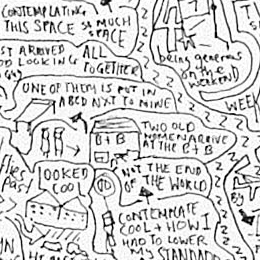 CONTEMPLATING
THIS SPACE SO MUCH
SPACE
ST ARRIVED ALL
OD LOOKING TOGETHER
being generous
on the
WEEKEND
ONE OF THEM IS PUT IN
A BED NXT TO MINE
WEEK
TWO OLD
WOMEN ARRIVE
AT THE B+B
B+B
flies
PAST
LOOKED
COOL
NOT THE END
OF THE WORLD
BY
CONTEMPLATE
COOL + HOW I
HAD TO LOWER
MY STANDARD